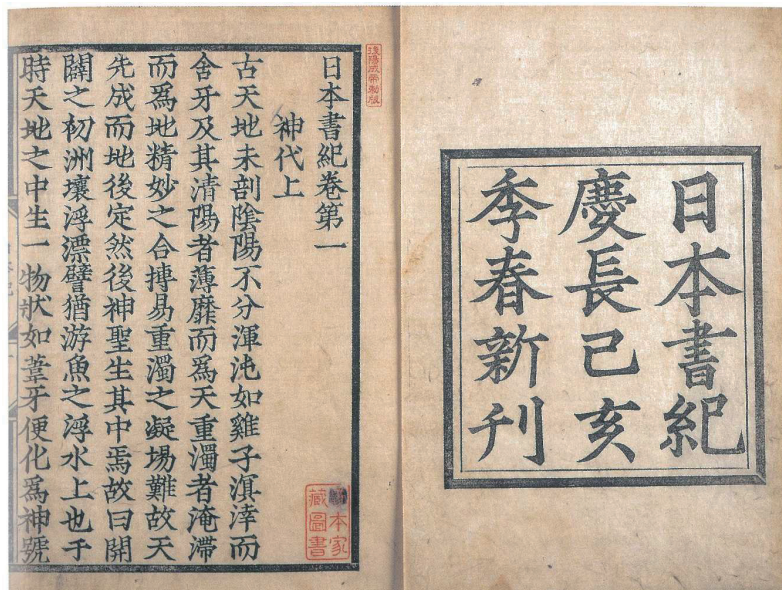 日本書紀
慶長己亥
季春新刊
後陽成帝勅版
日本書紀卷第一
神代上
古天地未剖陰陽不分渾沌如雞子溟涬而
含牙及其清陽者薄靡而爲天重濁者淹滯
而爲地精妙之合摶易重濁之凝場難故天
先成而地後定然後神聖生其中焉故曰開
闢之初洲壤浮漂譬猶游魚之浮水上也于
時天地之中生一物狀如葦牙便化爲神號
本家
藏圖書